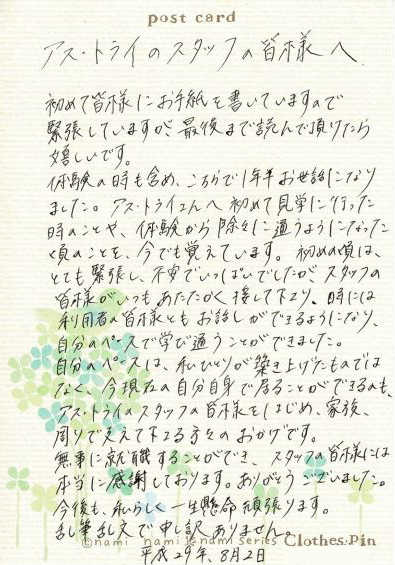 post card
アス・トライのスタッフの皆様へ
初めて皆様にお手紙を書いていますので
緊張していますが、最後まで読んで頂けたら
嬉しいです。
体験の時も含め、こちらで1年半お世話になり
ました。アス・トライさんへ初めて見学に行った
時のことや、体験から除々に通うようになった
頃のことを、今でも覚えています。初めの頃は、
とても緊張し、不安でいっぱいでしたが、スタッフの
皆様がいつもあたたかく接して下さり、時には
利用者の皆様ともお話しができるようになり、
自分のペースで学び通うことができました。
自分のペースは、私ひとりが築き上げたものでは
なく、今現在の自分自身で居ることができるのも、
アス・トライのスタッフの皆様をはじめ、家族、
周りで支えて下さる方々のおかげです。
無事に就職することができ、スタッフの皆様には
本当に感謝しております。ありがとうございました。
今後も、私らしく一生懸命頑張ります。
乱筆乱文で申し訳ありません。
©nami nami nami Series Clothes Pin
平成29年、8月2日